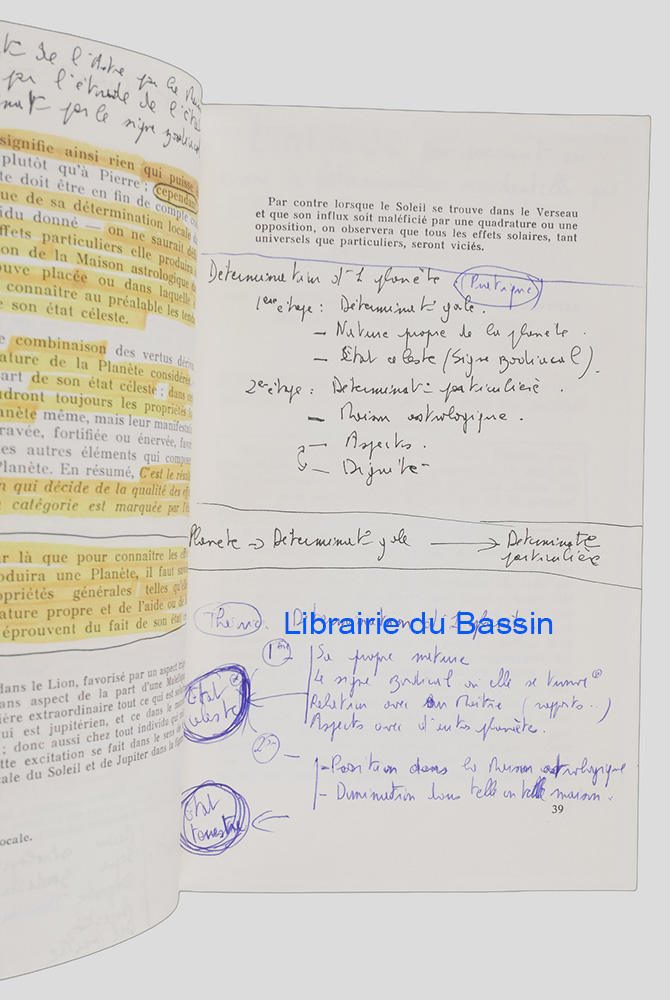 de l'Astre par la Maison
par l'étude de l'état
par le signe zodiacal
signifie ainsi rien qui puisse
plutôt qu'à Pierre ; cependant
te doit être en fin de compte
ue de sa détermination locale
idu donné — on ne saurait
ffets particuliers elle produira
on de la Maison astrologique
ouve placée ou dans laquelle
connaître au préalable les
e son état céleste.
e combinaison des vertus
ature de la Planète considérée
art de son état céleste ; dans
udront toujours les propriétés
anète même, mais leur
ravée, fortifiée ou énervée,
es autres éléments qui
Planète. En résumé, C'est le
n qui décide de la qualité des
a catégorie est marquée par
ar là que pour connaître les
oduira une Planète, il faut
opriétés générales telles
ature propre et de l'aide ou de
éprouvent du fait de son état
dans le Lion, favorisé par un aspect
ans aspect de la part d'une
ière extraordinaire tout ce qui est
ui est jupitérien, et ce dans le
; donc aussi chez tout individu qui
tte excitation se fait dans le sens de
ale du Soleil et de Jupiter dans la
ocale.
Par contre lorsque le Soleil se trouve dans le Verseau
et que son influx soit maléficié par une quadrature ou une
opposition, on observera que tous les effets solaires, tant
universels que particuliers, seront viciés.
Détermination d'1 planète. Pratique
1ère étape : Déterminat° gale.
— Nature propre de la planète.
— Etat céleste (Signe zodiacal).
2e étape : Déterminat° particulière.
— Maison astrologique.
— Aspects.
— Dignité
Planète → Déterminat° gale → Déterminat° particulière
Théorie. Détermination d'1 planète
Librairie du Bassin
1° Sa propre nature
Etat céleste
Le signe zodiacal où elle se trouve
Relation avec son Maître (rapports...)
Aspects avec d'autres planètes.
2° – Position dans la Maison astrologique
– Domination dans telle ou telle maison.
Etat terrestre
39